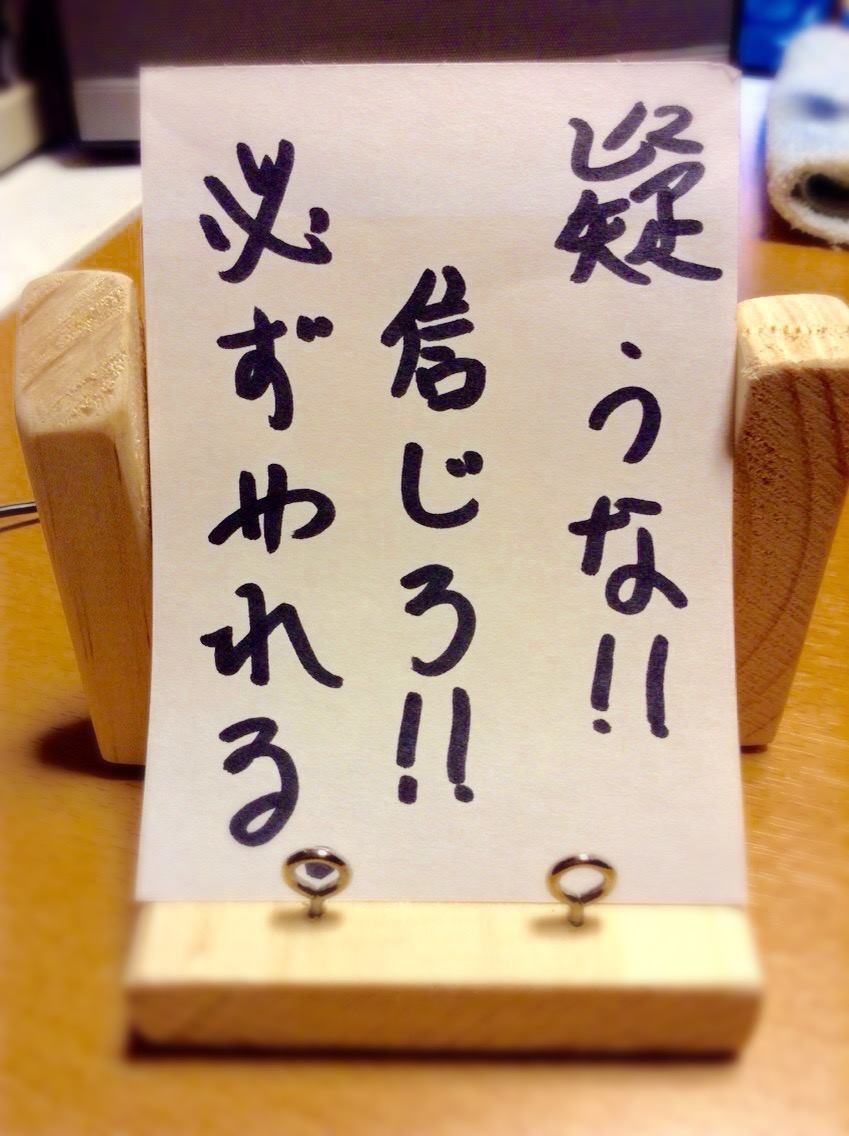 疑うな!!
信じろ!!
必ずやれる